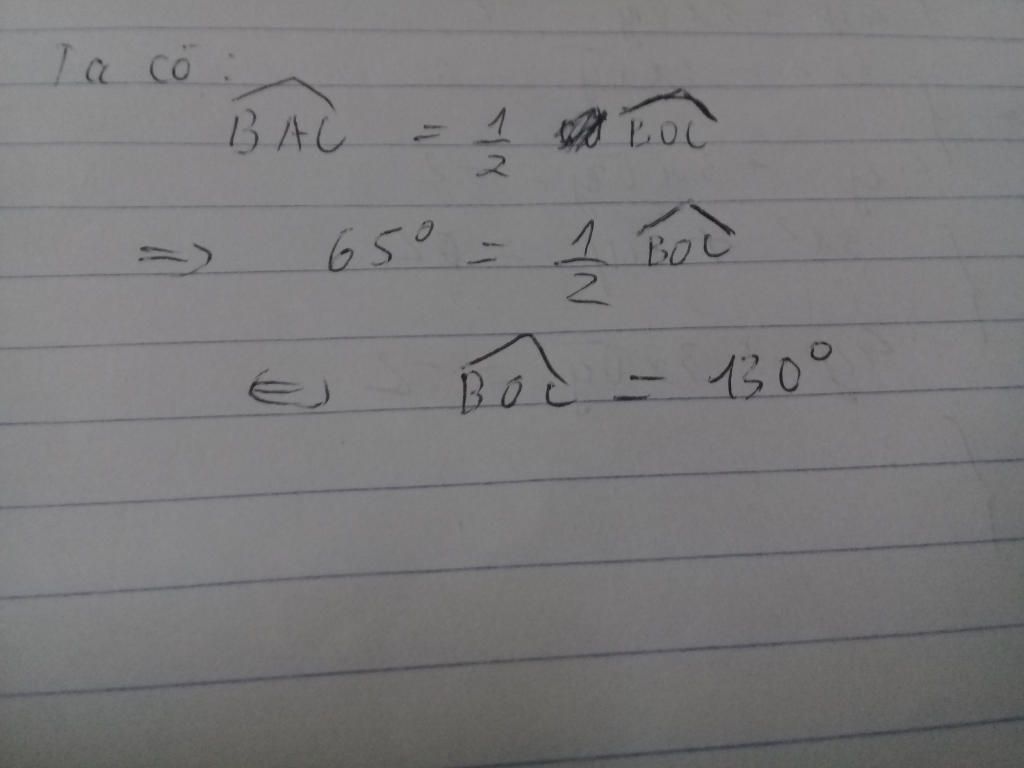 Ta có:
$\widehat{BAC} = \frac{1}{2} \widehat{BOC}$
$\Rightarrow 65^0 = \frac{1}{2} \widehat{BOC}$
$\Leftrightarrow \widehat{BOC} = 130^0$